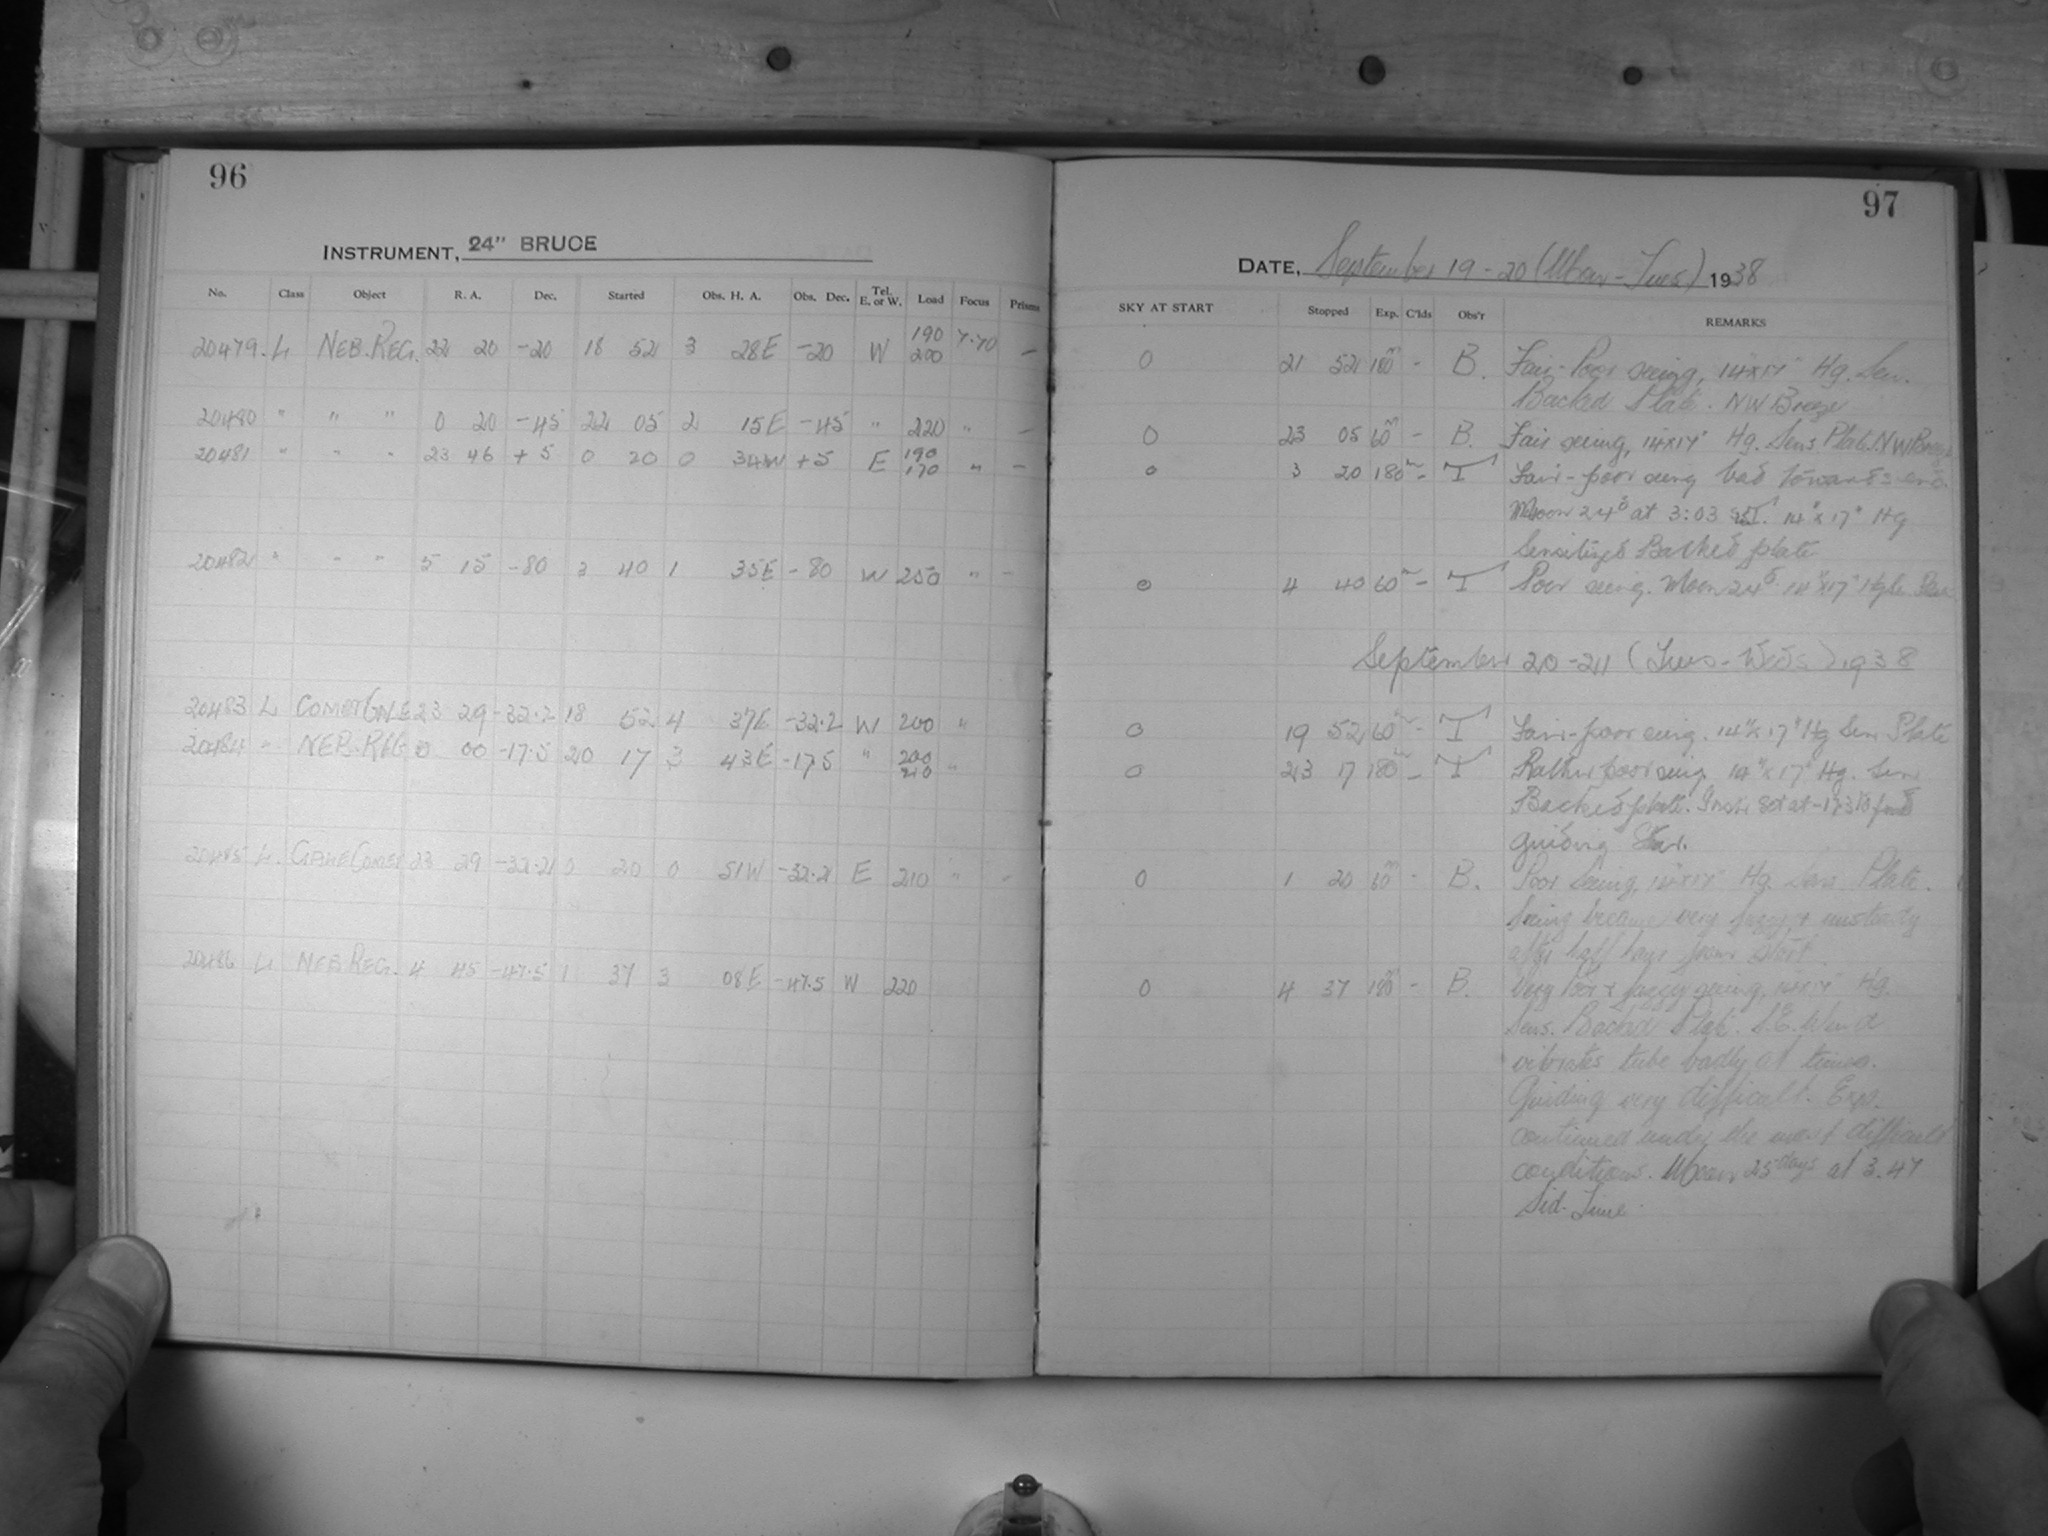 96
INSTRUMENT, 24" BRUCE
No. Class Object R. A. Dec. Started Obs. H. A. Obs. Dec. Tel. E. or W. Load Focus Prisms
20479. L NEB. REG. 22 20 -20 18 52 3 28E -20 W 190 200 7.70 -
20480 " " " 0 20 -45 22 05 2 15E -45 " 220 " -
20481 " " " 23 46 +5 0 20 0 34W +5 E 190 170 " -
20482 " " " 5 15 -80 3 40 1 35E -80 W 250 " -
20483 L COMET GALE 23 29 -32.2 18 52 4 37E -32.2 W 200 "
20484 " NEB. REG 0 00 -17.5 20 17 3 43E -17.5 " 200 210 "
20485 L. GALE COMET 23 29 -32.2 0 20 0 51W -32.2 E 210 " -
20486 L NEB REG. 4 45 -47.5 1 37 3 08E -47.5 W 220
97
DATE, September 19-20 (Mon-Tues) 1938
SKY AT START Stopped Exp. C'lds Obs'r REMARKS
0 21 52 180m - B. Fair-Poor seeing, 14x17" Hg. Sen.
Backed Plate. NW Breeze
0 23 05 60m - B. Fair seeing, 14x17" Hg. Sens Plate. NW Breeze
0 3 20 180m - T Fair-poor seeing bad towards end
Moon 24d at 3:03 ST. 14"x17" Hg
Sensitized Backed plate
0 4 40 60m - T Poor seeing. Moon 24d. 14"x17" Hg Sen Plate
September 20-21 (Tues-Weds) 1938
0 19 52 60m - T Fair-poor seeing. 14"x17" Hg Sen Plate
0 23 17 180m - T Rather poor seeing 14"x17" Hg. Sen
Backed plate.
guiding Star.
0 1 20 60m - B. Poor Seeing, 14x17" Hg. Sens Plate.
Seeing became very fuzzy & unsteady
after half hour from start.
0 4 37 180m - B. Very Poor & fuzzy seeing, 14x17" Hg.
Sens. Backed Plate. S.E. Wind
vibrates tube badly at times.
Guiding very difficult. Exp.
continued under the most difficult
conditions. Moon 25 days at 3.47
Sid. Time.